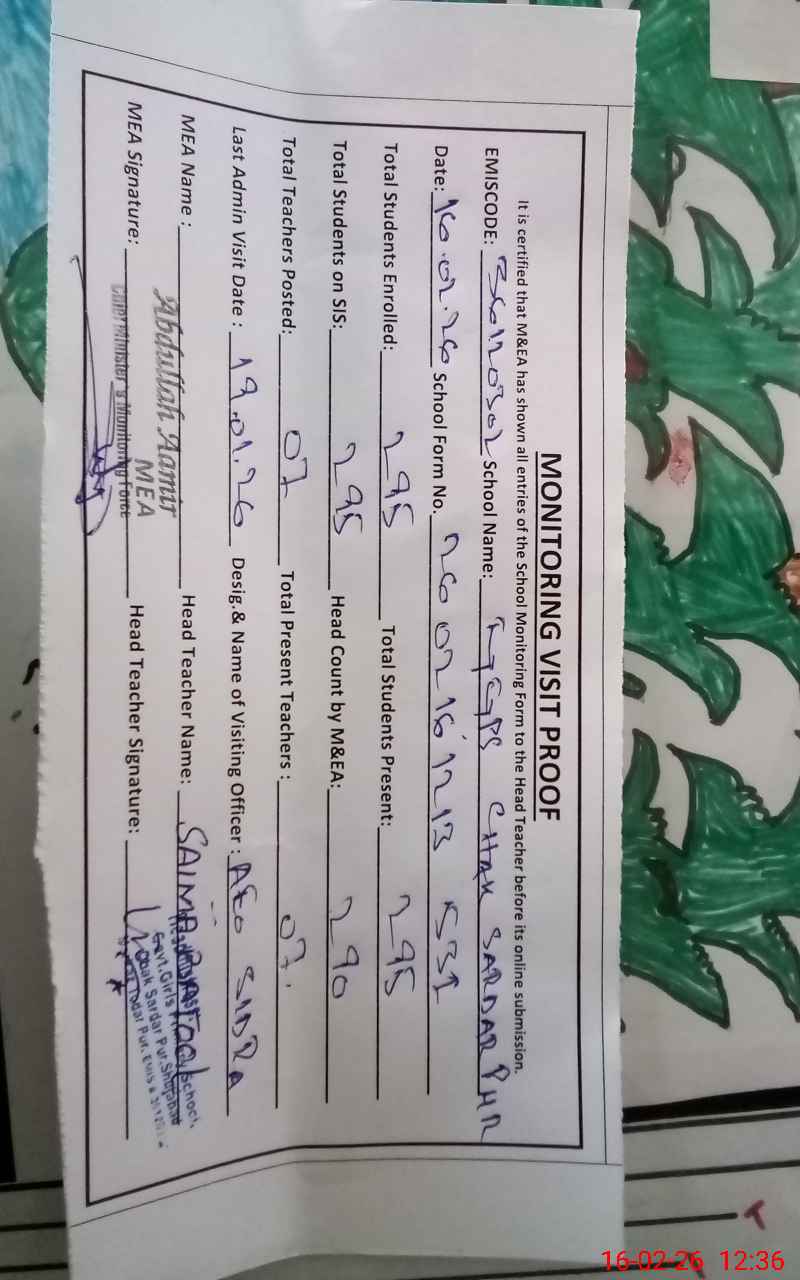 MONITORING VISIT PROOF
It is certified that M&EA has shown all entries of the School Monitoring Form to the Head Teacher before its online submission.
EMISCODE: School Name: CHAK SARDAR PUR
Date: 16.02.26 School Form No.
Total Students Enrolled: 295 Total Students Present: 295
Total Students on SIS: 295 Head Count by M&EA: 290
Total Teachers Posted: 07 Total Present Teachers : 07.
Last Admin Visit Date : 19.01.26 Desig.& Name of Visiting Officer : AEO SIDRA
MEA Name : Abdullah Aamir Head Teacher Name: SAIMA
MEA
MEA Signature: Chief Minister's Monitoring Force Head Teacher Signature:
Govt.Girls School,
Chak Sardar Pur.Shujabad
16-02-26 12:36